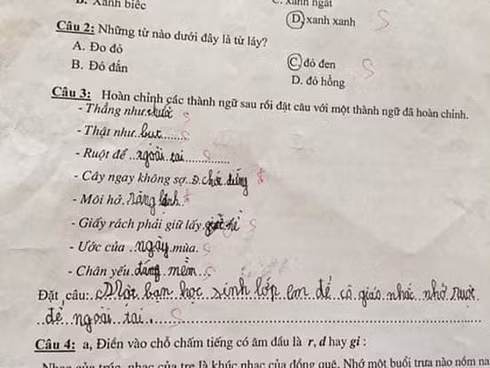 B. Xanh biếc C. xanh ngắt
D. xanh xanh
Câu 2: Những từ nào dưới đây là từ láy?
A. Đo đỏ C. đỏ đen
B. Đỏ đắn D. đỏ hồng
Câu 3: Hoàn chỉnh các thành ngữ sau rồi đặt câu với một thành ngữ đã hoàn chỉnh.
- Thẳng như
- Thật như bụt
- Ruột để ngoài tai
- Cây ngay không sợ chó đứng
- Môi hở răng lạnh
- Giấy rách phải giữ lấy
- Ước của ngày mùa.
- Chân yếu mềm
Đặt câu: Một bạn học sinh lớp em để cô giáo nhắc nhở ruột
để ngoài tai.
Câu 4: a, Điền vào chỗ chấm tiếng có âm đầu là r, d hay gi :
Nhạc của trúc, nhạc của tre là khúc nhạc của đồng quê. Nhớ một buổi trưa nào nồm na